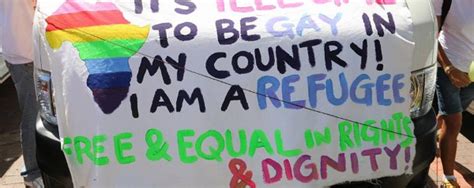 IT'S ILLEGAL
TO BE GAY IN
MY COUNTRY!
I AM A REFUGEE
FREE & EQUAL IN RIGHTS
& DIGNITY!